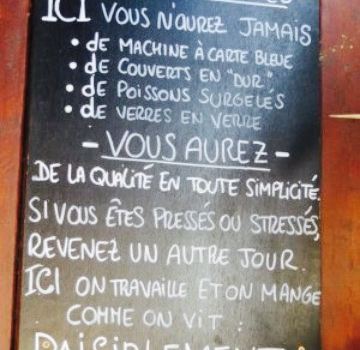 ICI VOUS N'AUREZ JAMAIS
• de MACHINE À CARTE BLEUE
• de COUVERTS EN "DUR"
• de POISSONS SURGELÉS
• de VERRES EN VERRE
- VOUS AUREZ -
DE LA QUALITÉ EN TOUTE SIMPLICITÉ.
SI VOUS ÊTES PRESSÉS OU STRESSÉS,
REVENEZ UN AUTRE JOUR.
ICI ON TRAVAILLE ET ON MANGE
COMME ON VIT :
PAISIBLEMENT